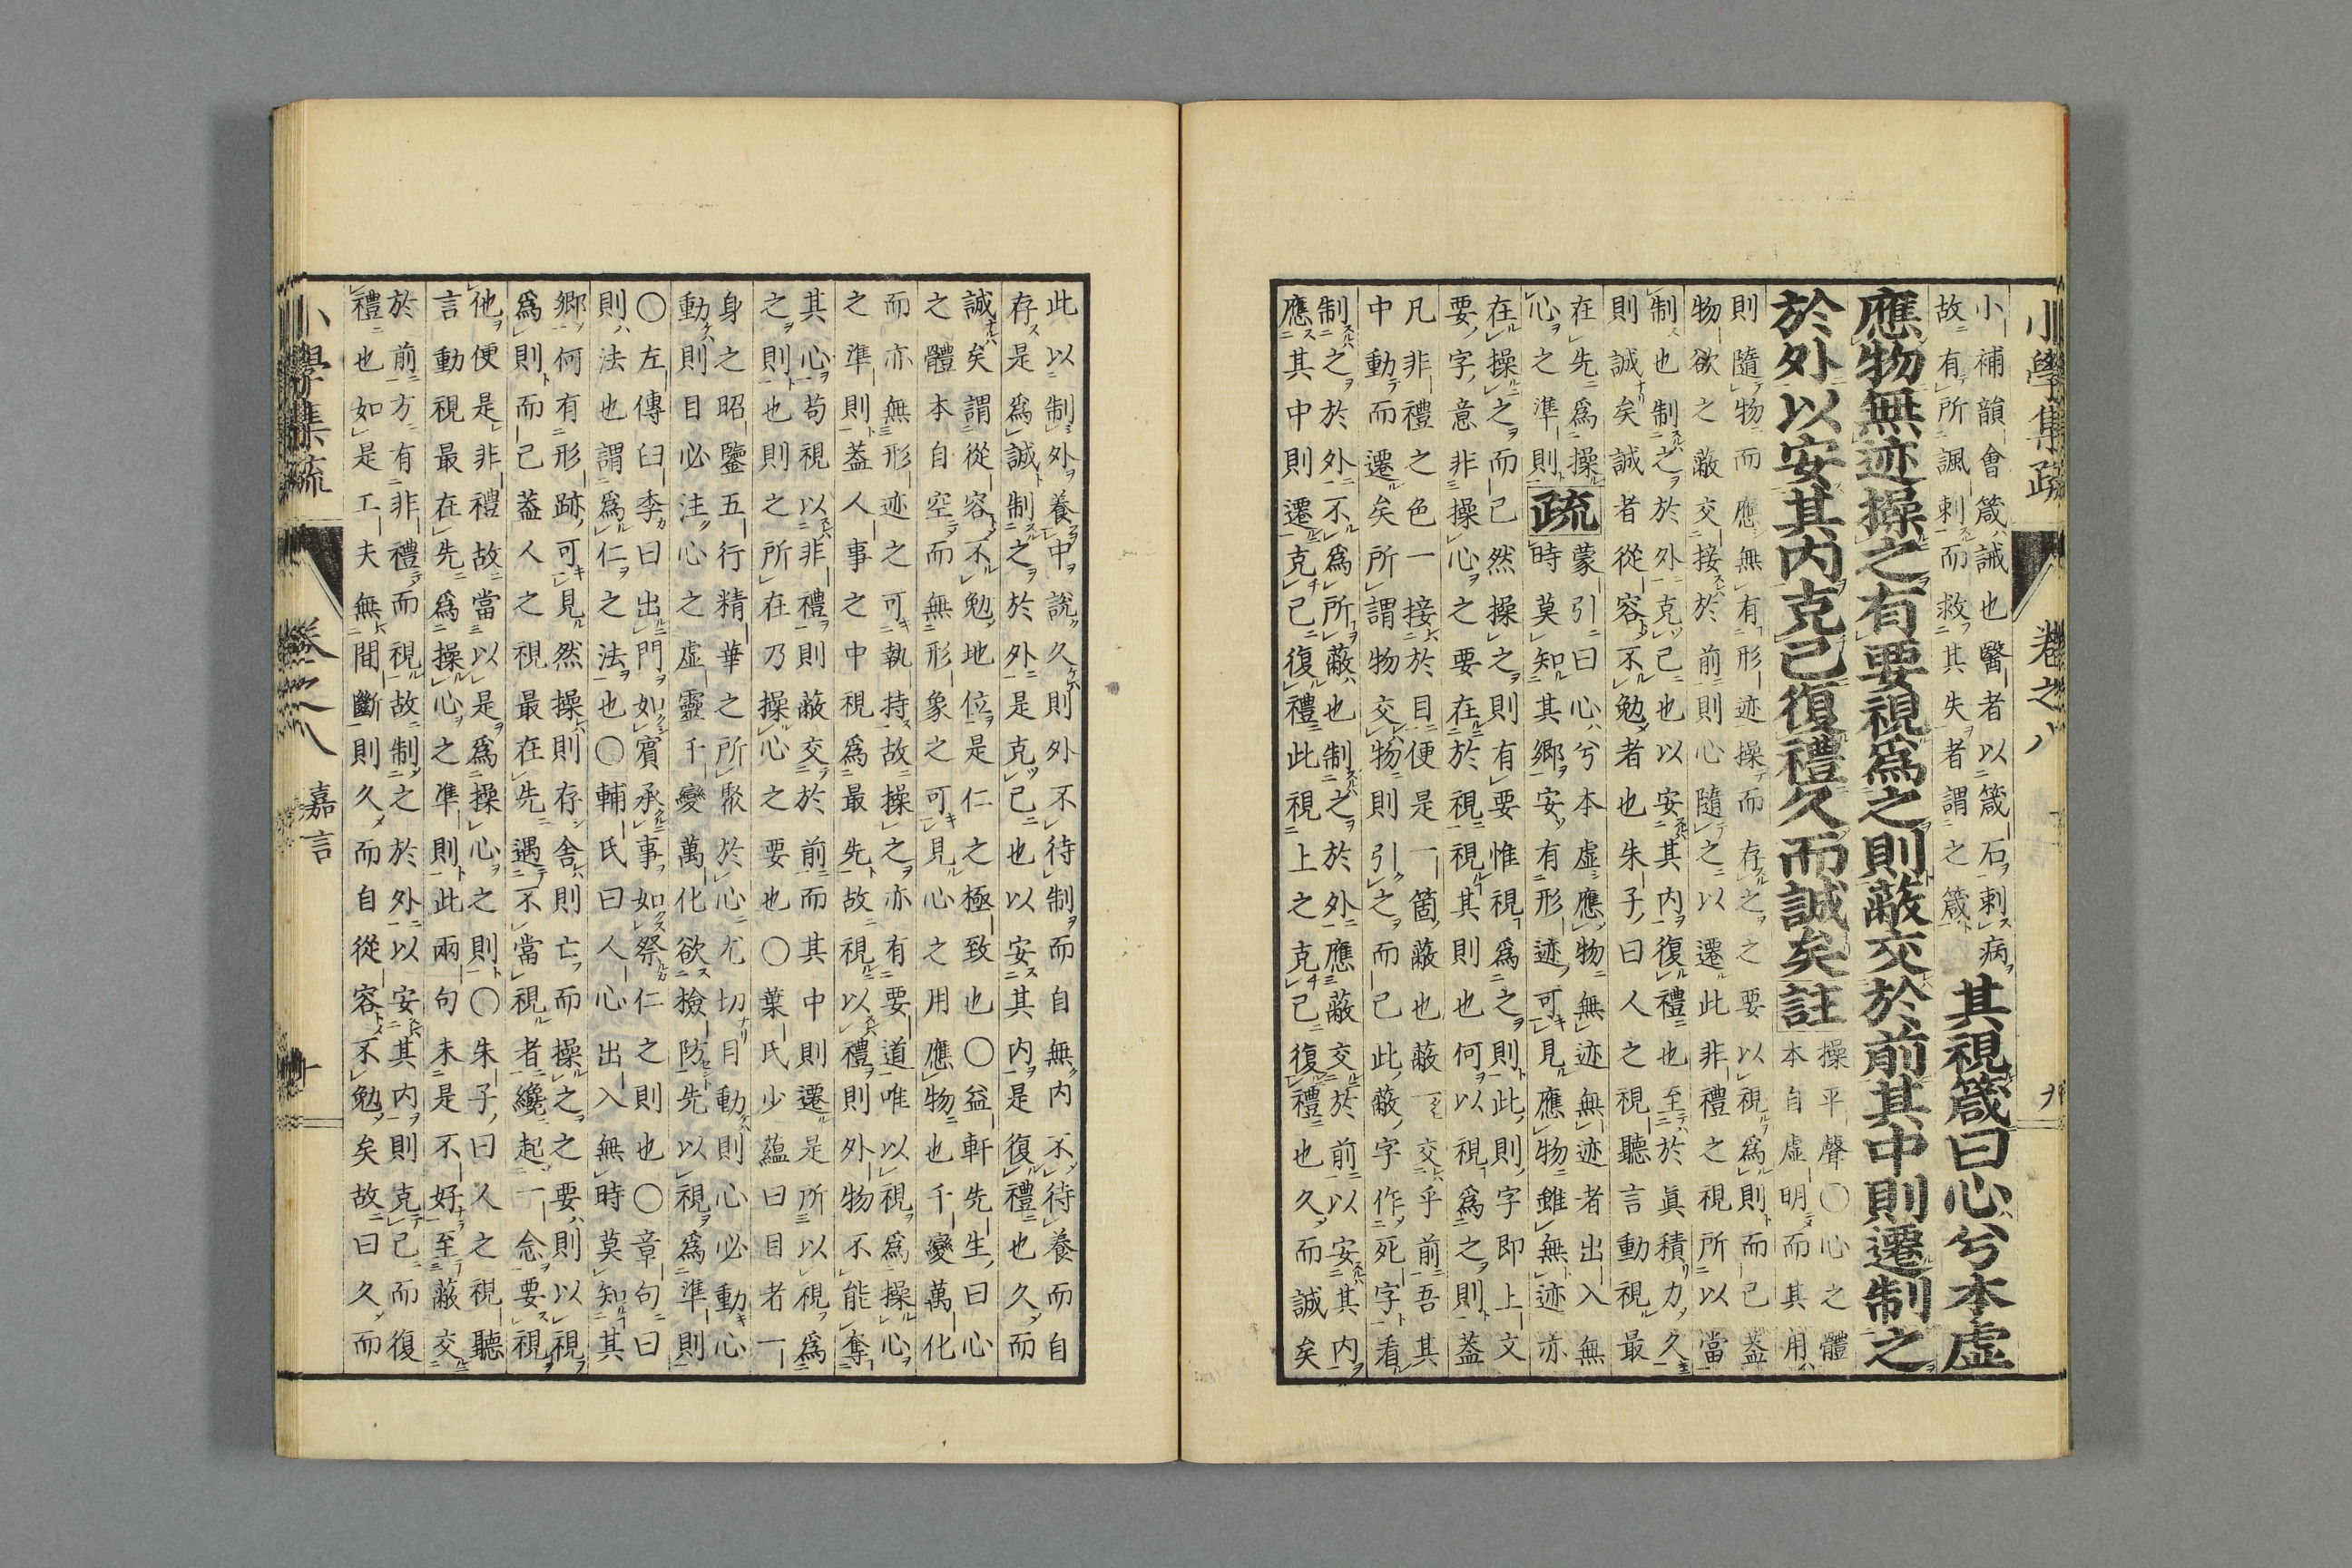 小學集疏 卷之八 九
小補韻會箴誡也醫者以箴石刺病
故有所諷刺而救其失者謂之箴
其視箴曰心兮本虛
應物無迹操之有要視爲之則蔽交於前其中則遷制之
於外以安其内克己復禮久而誠矣註
操平聲〇心之體
本自虛明而其用
則隨物而應無有形迹操而存之之要以視爲則而已蓋
物欲之蔽交接於前則心隨之以遷此非禮之視所以當
制也制之於外克己也以安其内復禮也至於眞積力久
則誠矣誠者從容不勉者也朱子曰人之視聽言動視最
在先爲操
心之準則
疏
蒙引曰心兮本虛應物無迹無迹者出入無
時莫知其鄉安有形迹可見應物雖無迹亦
在操之而已然操之則有要惟視爲之則此則字即上文
要字意非操心之要在於視視其則也何以視爲之則蓋
凡非禮之色一接於目便是一箇蔽也蔽一交乎前吾其
中動而遷矣所謂物交物則引之而已此蔽字作死字看
制之於外不爲所蔽也制之於外應蔽交於前以安其内
應其中則遷克己復禮此視上之克己復禮也久而誠矣
此以制外養中說久則外不待制而自無内不待養而自
存是爲誠制之於外是克己也以安其内是復禮也久而
誠矣謂從容不勉地位是仁之極致也〇益軒先生曰心
之體本自空而無形象之可見心之用應物也千變萬化
而亦無形迹之可執持故操之亦有要道唯以視爲操心
之準則蓋人事之中視爲最先故視以禮則外物不能奪
其心苟視以非禮則蔽交於前而其中則遷是所以視爲
之則也則之所在乃操心之要也〇葉氏少蘊曰目者一
身之昭鑒五行精華之所聚於心尤切目動則心必動心
動則目必注心之虛靈千變萬化欲檢防先以視爲準則
〇左傳臼季曰出門如賓承事如祭仁之則也〇章句曰
則法也謂爲仁之法也〇輔氏曰人心出入無時莫知其
鄉何有形跡可見然操則存舍則亡而操之之要則以視
爲則而已蓋人之視最在先遇不當視者纔起一念要視
他便是非禮故當以是爲操心之則〇朱子曰人之視聽
言動視最在先爲操心之準則此兩句未是不好至蔽交
於前方有非禮而視故制之於外以安其内則克己而復
禮也如是工夫無間斷則久而自從容不勉矣故曰久而
小學集疏 卷之八 嘉言 十